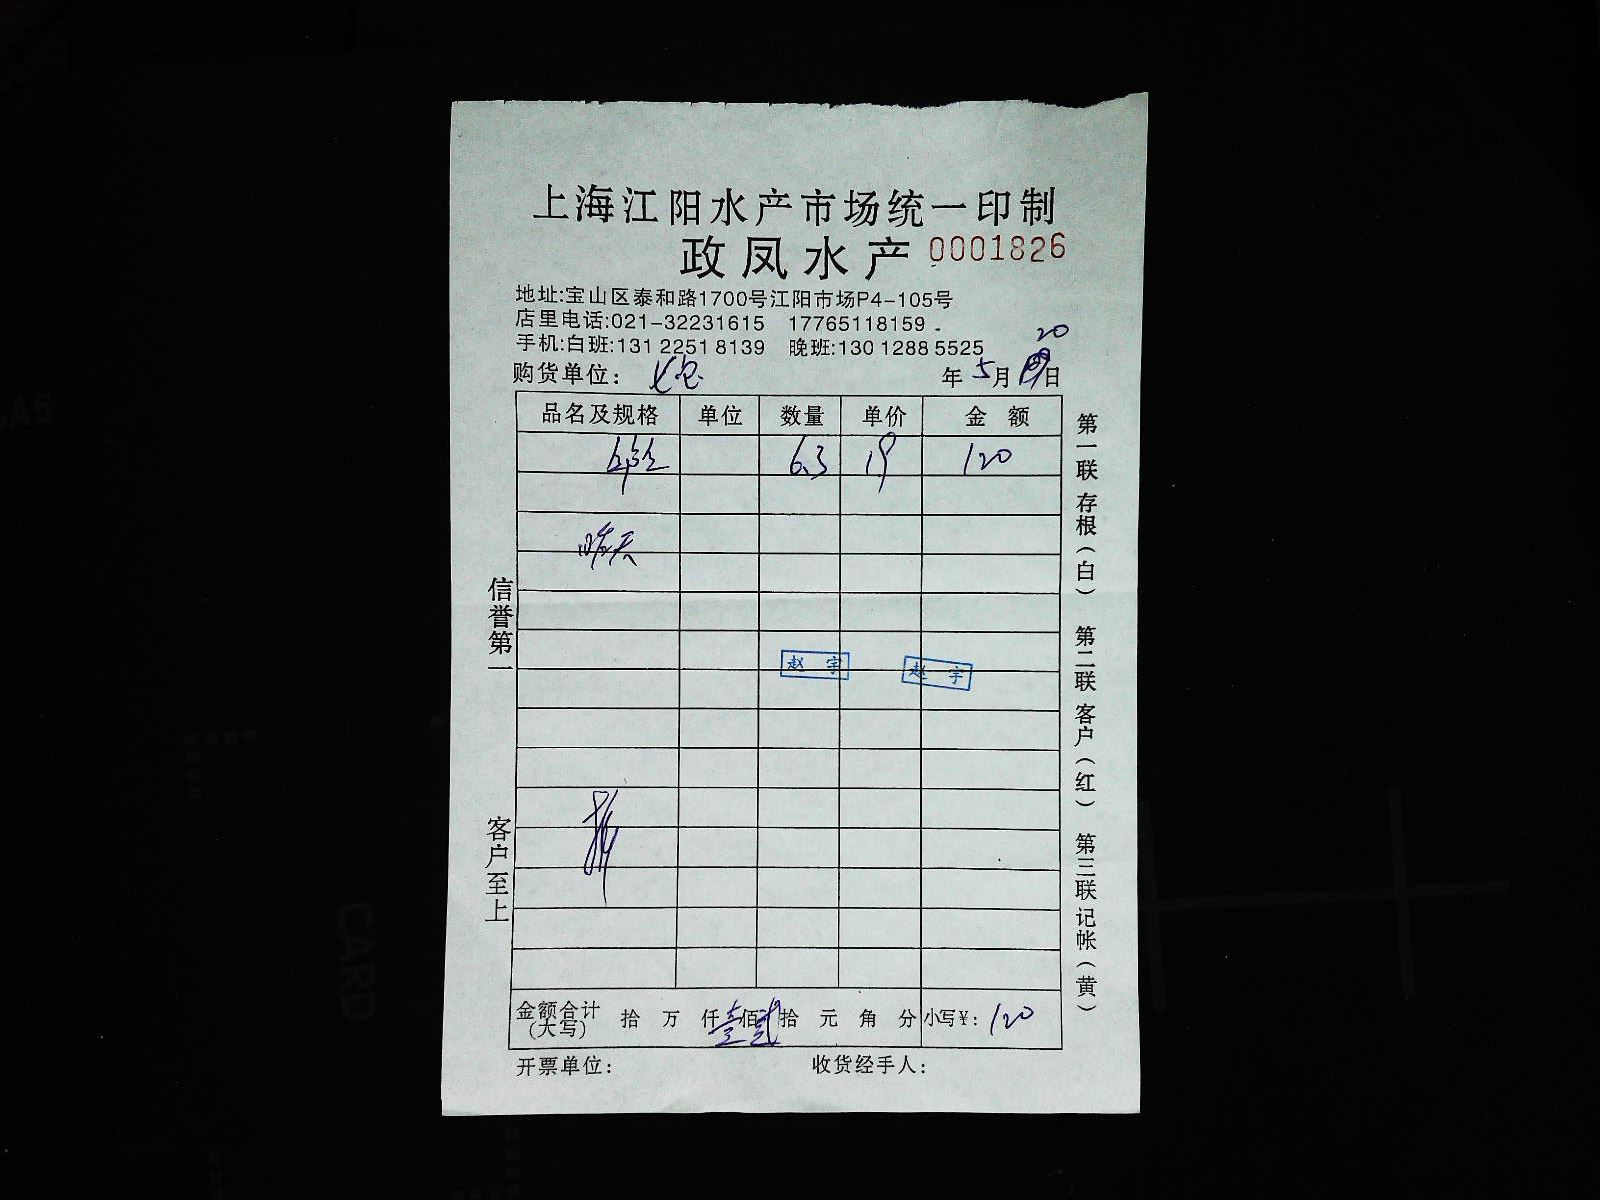 上海江阳水产市场统一印制
政凤水产 0001826
地址:宝山区泰和路1700号江阳市场P4-105号
店里电话:021-32231615 17765118159
手机:白班:131 2251 8139 晚班:130 1288 5525
20
购货单位: 年 5 月 日
品名及规格 单位 数量 单价 金额
6.3 19 120
昨天
赵宇 赵宇
金额合计(大写) 拾 万 仟 壹 佰 贰 拾 元 角 分 小写¥: 120
开票单位: 收货经手人:
信誉第一 客户至上
第一联存根(白) 第二联客户(红) 第三联记帐(黄)
CARD